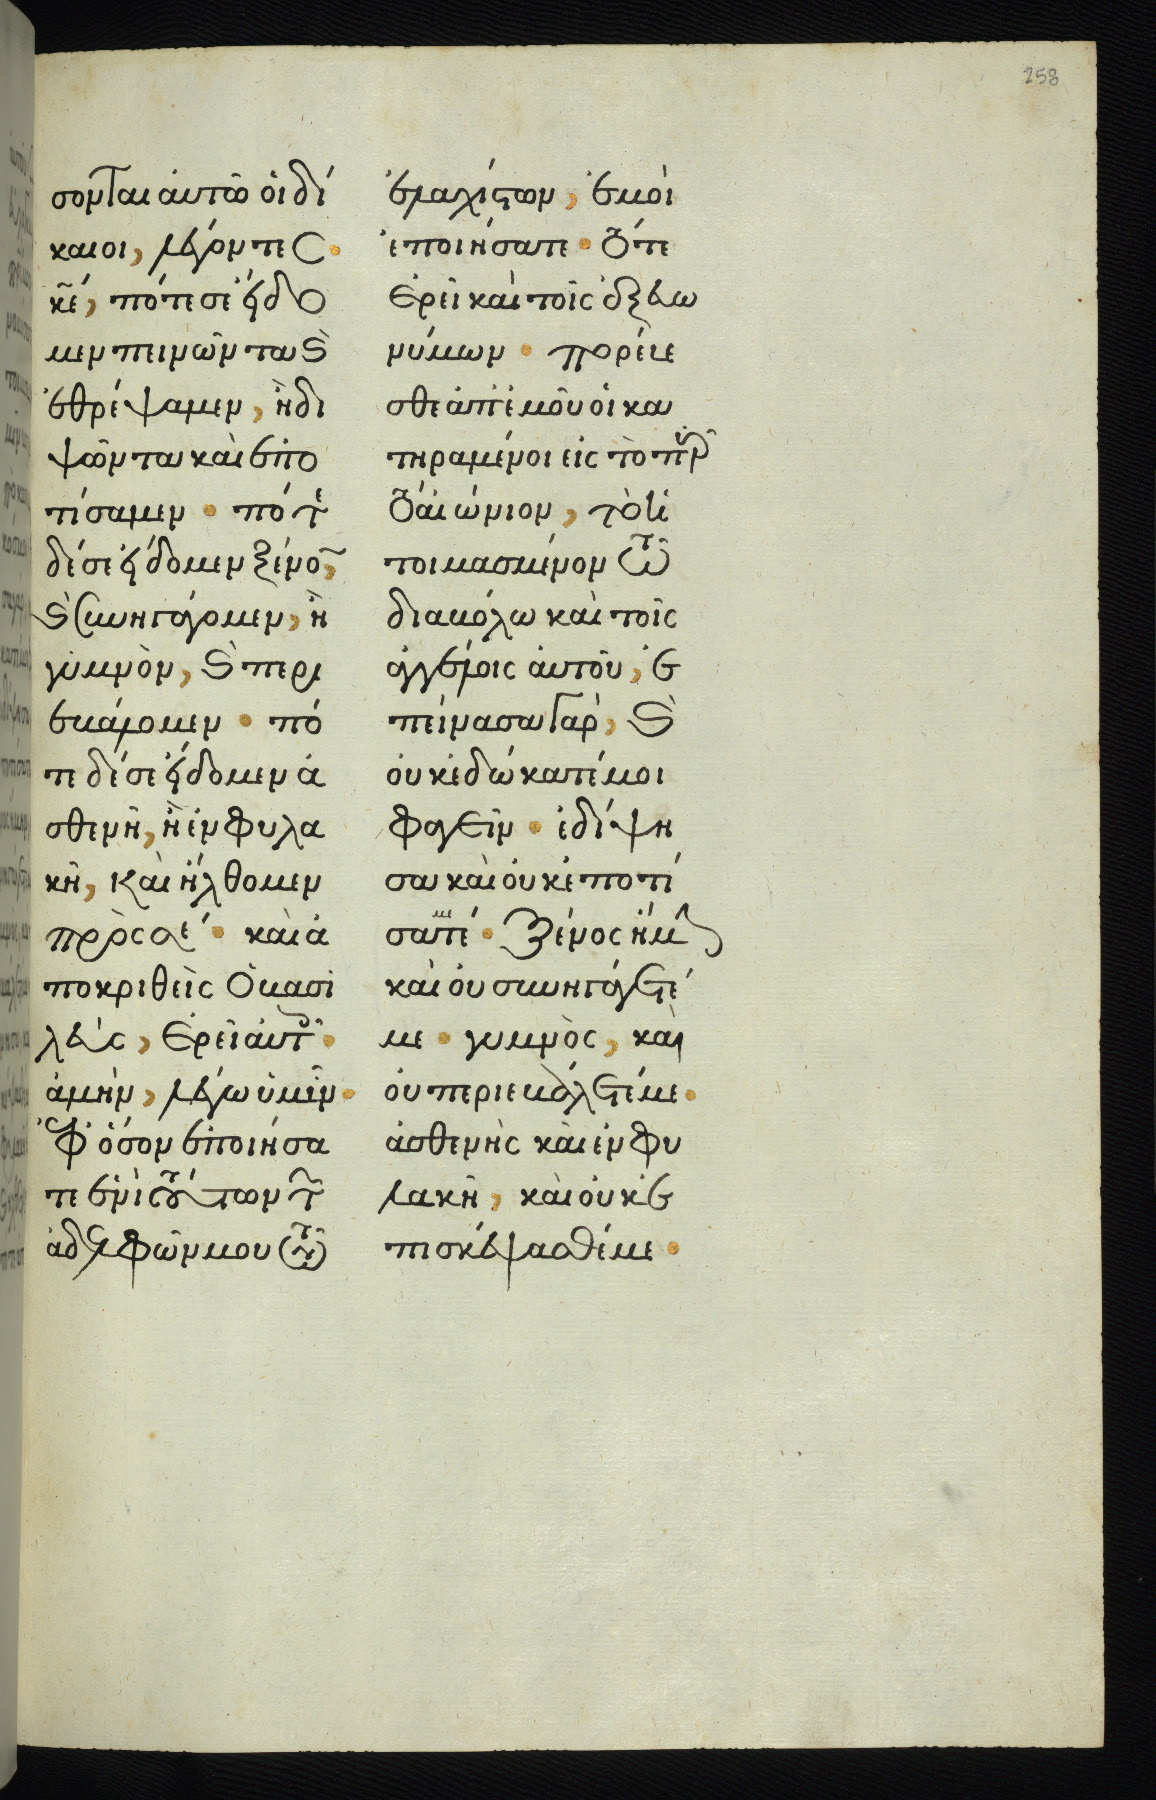 258
σονται αὐτῶ οἱ δί
καιοι, λέγοντες.
κε̅, πότε σὲ εἴδο
μεν πεινῶντα καὶ
ἐθρέψαμεν, ἢ δι
ψῶντα καὶ ἐπο
τίσαμεν. πότε
δέ σε εἴδομεν ξένον,
καὶ συνηγάγομεν, ἢ
γυμνὸν, καὶ περι
εβάλομεν. πό
τε δέ σε εἴδομεν ἀ
σθενῆ, ἢ ἐν φυλα
κῆ, καὶ ἤλθομεν
πρὸς σέ. καὶ ἀ
ποκριθεὶς ὁ βασι
λεὺς, ἐρεῖ αὐτοῖς.
ἀμὴν, λέγω ὑμῖν.
ἐφ ὅσον ἐποιήσα
τε ἑνὶ τούτων τῶν
ἀδελφῶν μου τῶν
ἐλαχίστων, ἐμοὶ
ἐποιήσατε. τότε
ἐρεῖ καὶ τοῖς ἐξ εὐω
νύμων. πορεύε
σθε ἀπ ἐμοῦ οἱ κα
τηραμένοι εἰς τὸ πῦρ
τὸ αἰώνιον, τὸ ἡ
τοιμασμένον τῶ
διαβόλω καὶ τοῖς
ἀγγέλοις αὐτοῦ, ἐ
πείνασα γὰρ, καὶ
οὐκ ἐδώκατέ μοι
φαγεῖν. ἐδίψη
σα καὶ οὐκ ἐποτί
σατέ με. ξένος ἤμην
καὶ οὐ συνηγάγετέ
με. γυμνὸς, καὶ
οὐ περιεβάλετέ με.
ἀσθενὴς καὶ ἐν φυ
λακῆ, καὶ οὐκ ἐ
πεσκέψασθέ με.